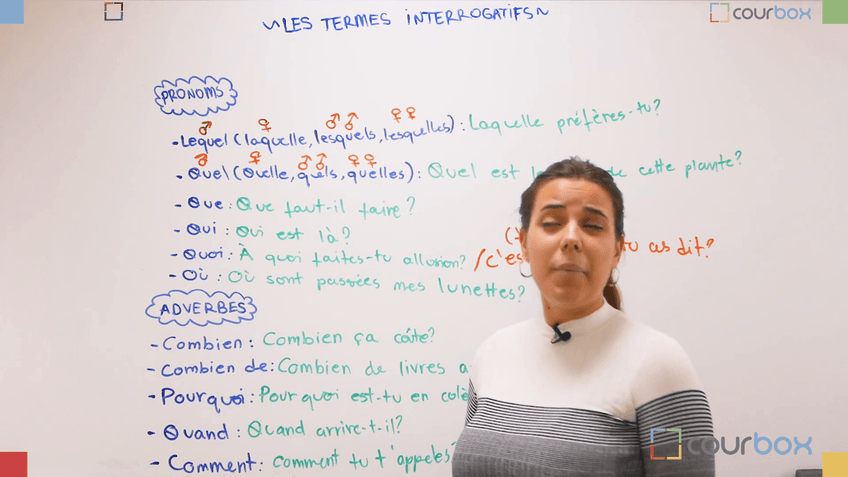 LES TERMES INTERROGATIFS
courbox
PRONOMS
- Lequel (laquelle, lesquels, lesquelles) : Laquelle préfères-tu?
- Quel (Quelle, quels, quelles) : Quel est de cette plante?
- Que : Que faut-il faire?
- Qui : Qui est là?
- Quoi : À quoi faites-tu allusion? /c'es tu as dit?
- Où : Où sont passées mes lunettes?
ADVERBES
- Combien : Combien ça coûte?
- Combien de : Combien de livres a
- Pourquoi : Pourquoi est-tu en colè
- Quand : Quand arrive-t-il?
- Comment : comment tu t'appeles?
courbox